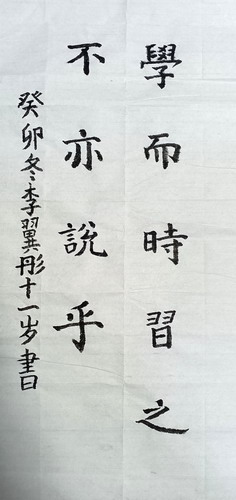 學而時習之
不亦說乎
癸卯冬李翼彤十一岁書